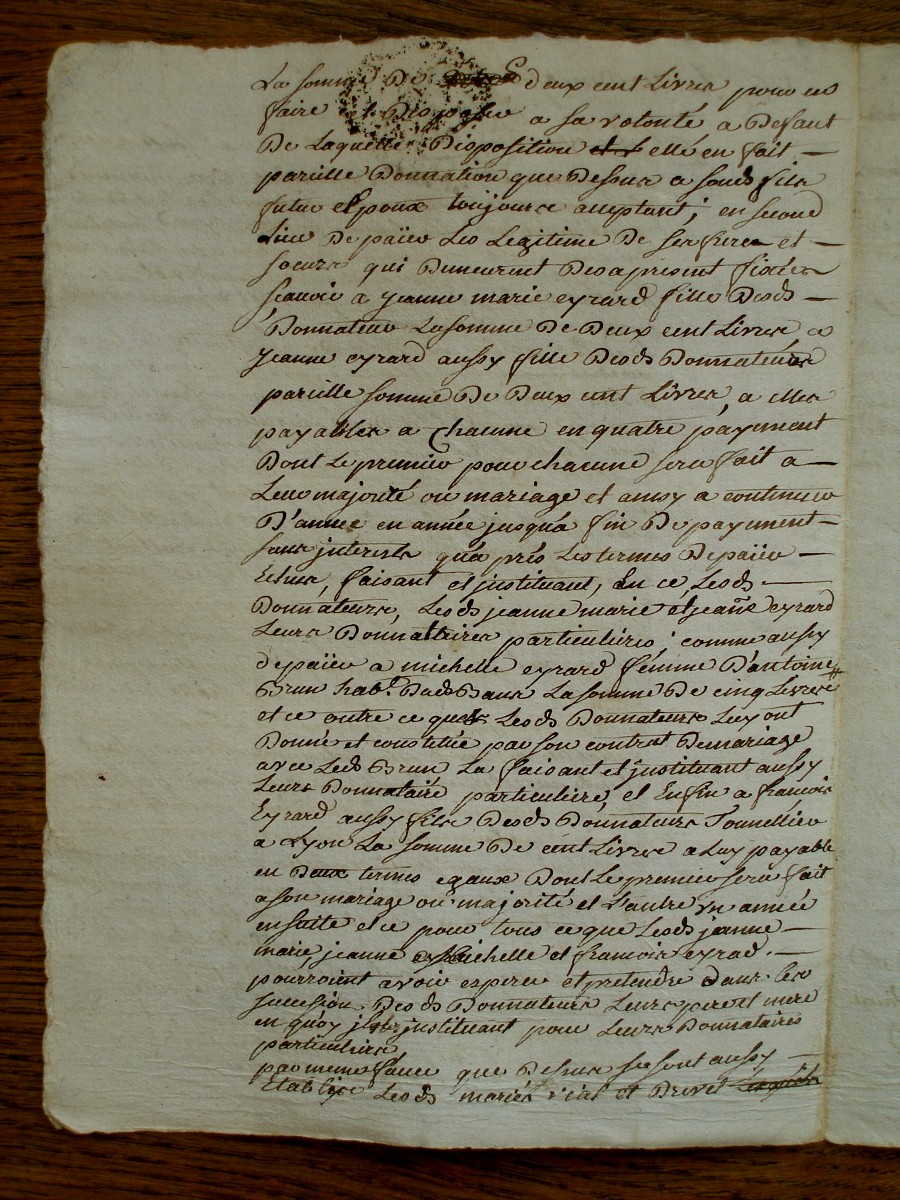 La somme de deux cent Livres pour en
faire et Disposer a sa volonté a Defaut
De Laquelle Disposition et elle en fait
pareille Donnation que Dessus a sond. fils
futur Epoux toujours acceptant ; en second
Lieu De païer Les Legitime De ses freres et
soeurs qui Demeurent Des a present fixées
scauoir a jeanne marie eyrard fille Desds
Donnateur La somme De Deux cent Livres a
jeanne eyrard aussy fille Desds Donnateurs
pareille somme De Deux cent Livres, a elles
payables a Chacune en quatre payement
Dont Le premier pour chacune sera fait a
Leur majorité ou mariage et ainsy a continuer
D'année en année jusqu'a fin De payement
sans interests qu'aprés Les termes De païer
Echus, faisant et jnstituant, En ce, Lesds
Donnateurs, Lesds jeanne marie et jeañe eyrard
Leurs Donnattaires particuliéres ; comme aussy
de païer a michelle eyrard femme D'antoine
Brun hab.t Dud. La somme De cinq Livres
et ce outre ce que Lesds Donnateurs Luy ont
Donné et constitué par son contrat De mariage
avec Led. Brun La faisant et jnstituant aussy
Leurs Donnataire particuliére, et Enfin a francois
Eyrard aussy fils Desds Donnateurs Tonnellier
a Lyon La somme De cent Livres a Luy payable
en Deux termes egaux Dont Le premier sera fait
a son mariage ou majorité et L'autre vn année
ensuite et ce pour tous ce que Lesds jeanne
marie, jeanne michelle et francois eyrard
pourroient avoir esperer et pretendre dans Les
succession Desds Donnateurs Leurs pere et mere
en quoy jls jnstituant pour Leurs Donnataires
particuliers
par meme que Dessus se sont aussy
Etablys Lesds mariés vial et Brivet